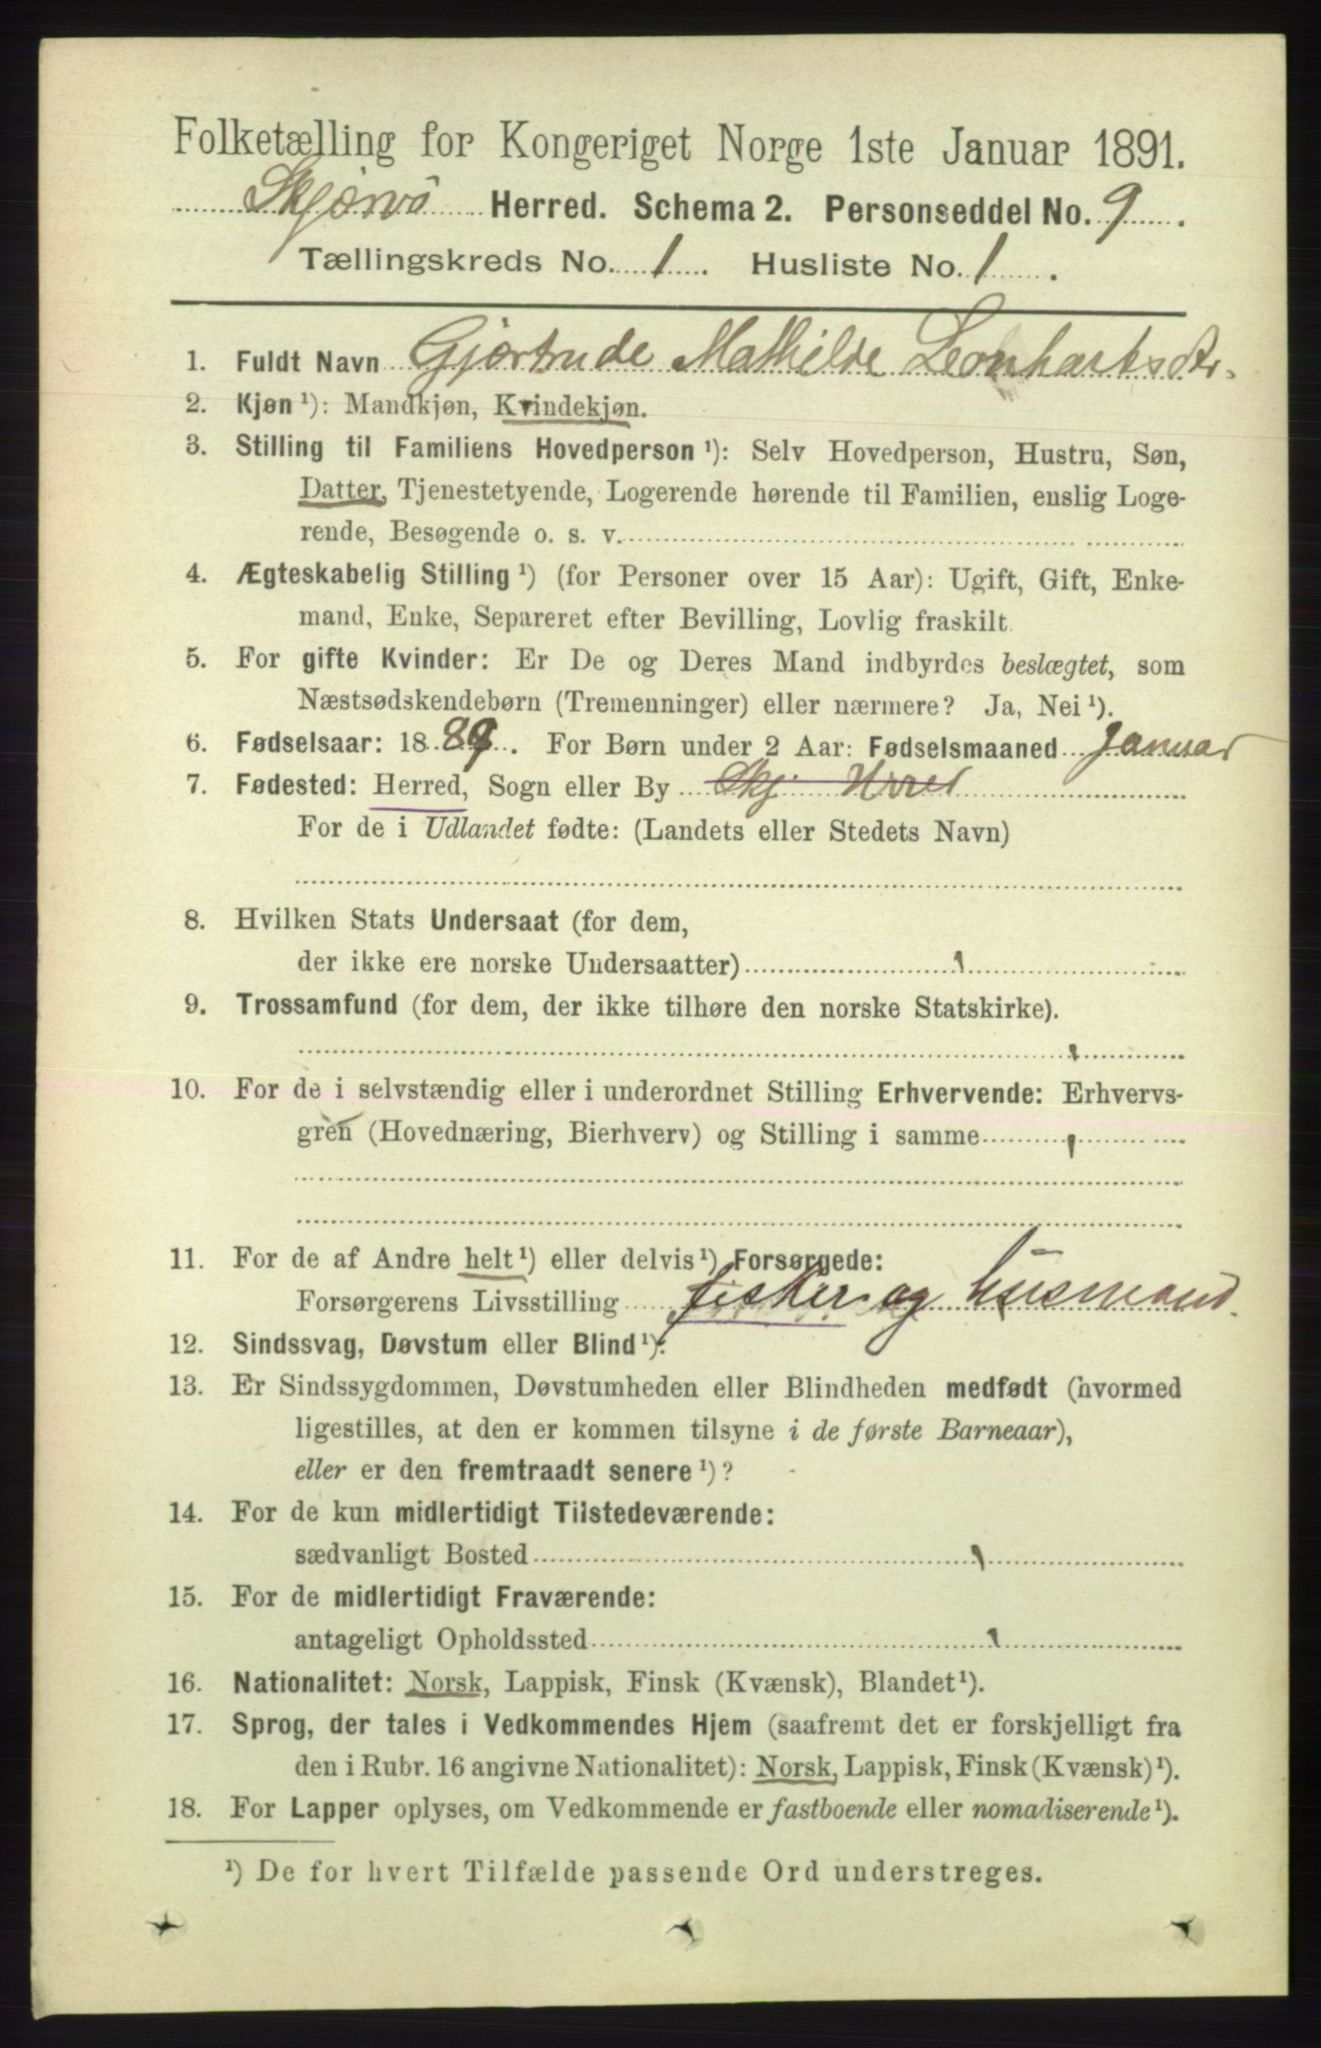 Folketælling for Kongeriget Norge 1ste Januar 1891.
Skjervö Herred. Schema 2. Personseddel No. 9.
Tællingskreds No. 1. Husliste No. 1.
1. Fuldt Navn Gjertrude Mathilde Leonhartsdtr.
2. Kjøn ¹): Mandkjøn, Kvindekjøn.
3. Stilling til Familiens Hovedperson ¹): Selv Hovedperson, Hustru, Søn,
Datter, Tjenestetyende, Logerende hørende til Familien, enslig Loge-
rende, Besøgende o. s. v.
4. Ægteskabelig Stilling ¹) (for Personer over 15 Aar): Ugift, Gift, Enke-
mand, Enke, Separeret efter Bevilling, Lovlig fraskilt
5. For gifte Kvinder: Er De og Deres Mand indbyrdes beslægtet, som
Næstsødskendebørn (Tremenninger) eller nærmere? Ja, Nei ¹).
6. Fødselsaar: 1889. For Børn under 2 Aar: Fødselsmaaned Januar
7. Fødested: Herred, Sogn eller By Skj
For de i Udlandet fødte: (Landets eller Stedets Navn)
8. Hvilken Stats Undersaat (for dem,
der ikke ere norske Undersaatter)
9. Trossamfund (for dem, der ikke tilhøre den norske Statskirke).
10. For de i selvstændig eller i underordnet Stilling Erhvervende: Erhvervs-
gren (Hovednæring, Bierhverv) og Stilling i samme
11. For de af Andre helt ¹) eller delvis ¹) Forsørgede:
Forsørgerens Livsstilling fisker og husmand.
12. Sindssvag, Døvstum eller Blind ¹).
13. Er Sindssygdommen, Døvstumheden eller Blindheden medfødt (hvormed
ligestilles, at den er kommen tilsyne i de første Barneaar),
eller er den fremtraadt senere ¹)?
14. For de kun midlertidigt Tilstedeværende:
sædvanligt Bosted
15. For de midlertidigt Fraværende:
antageligt Opholdssted
16. Nationalitet: Norsk, Lappisk, Finsk (Kvænsk), Blandet ¹).
17. Sprog, der tales i Vedkommendes Hjem (saafremt det er forskjelligt fra
den i Rubr. 16 angivne Nationalitet): Norsk, Lappisk, Finsk (Kvænsk) ¹).
18. For Lapper oplyses, om Vedkommende er fastboende eller nomadiserende ¹).
¹) De for hvert Tilfælde passende Ord understreges.